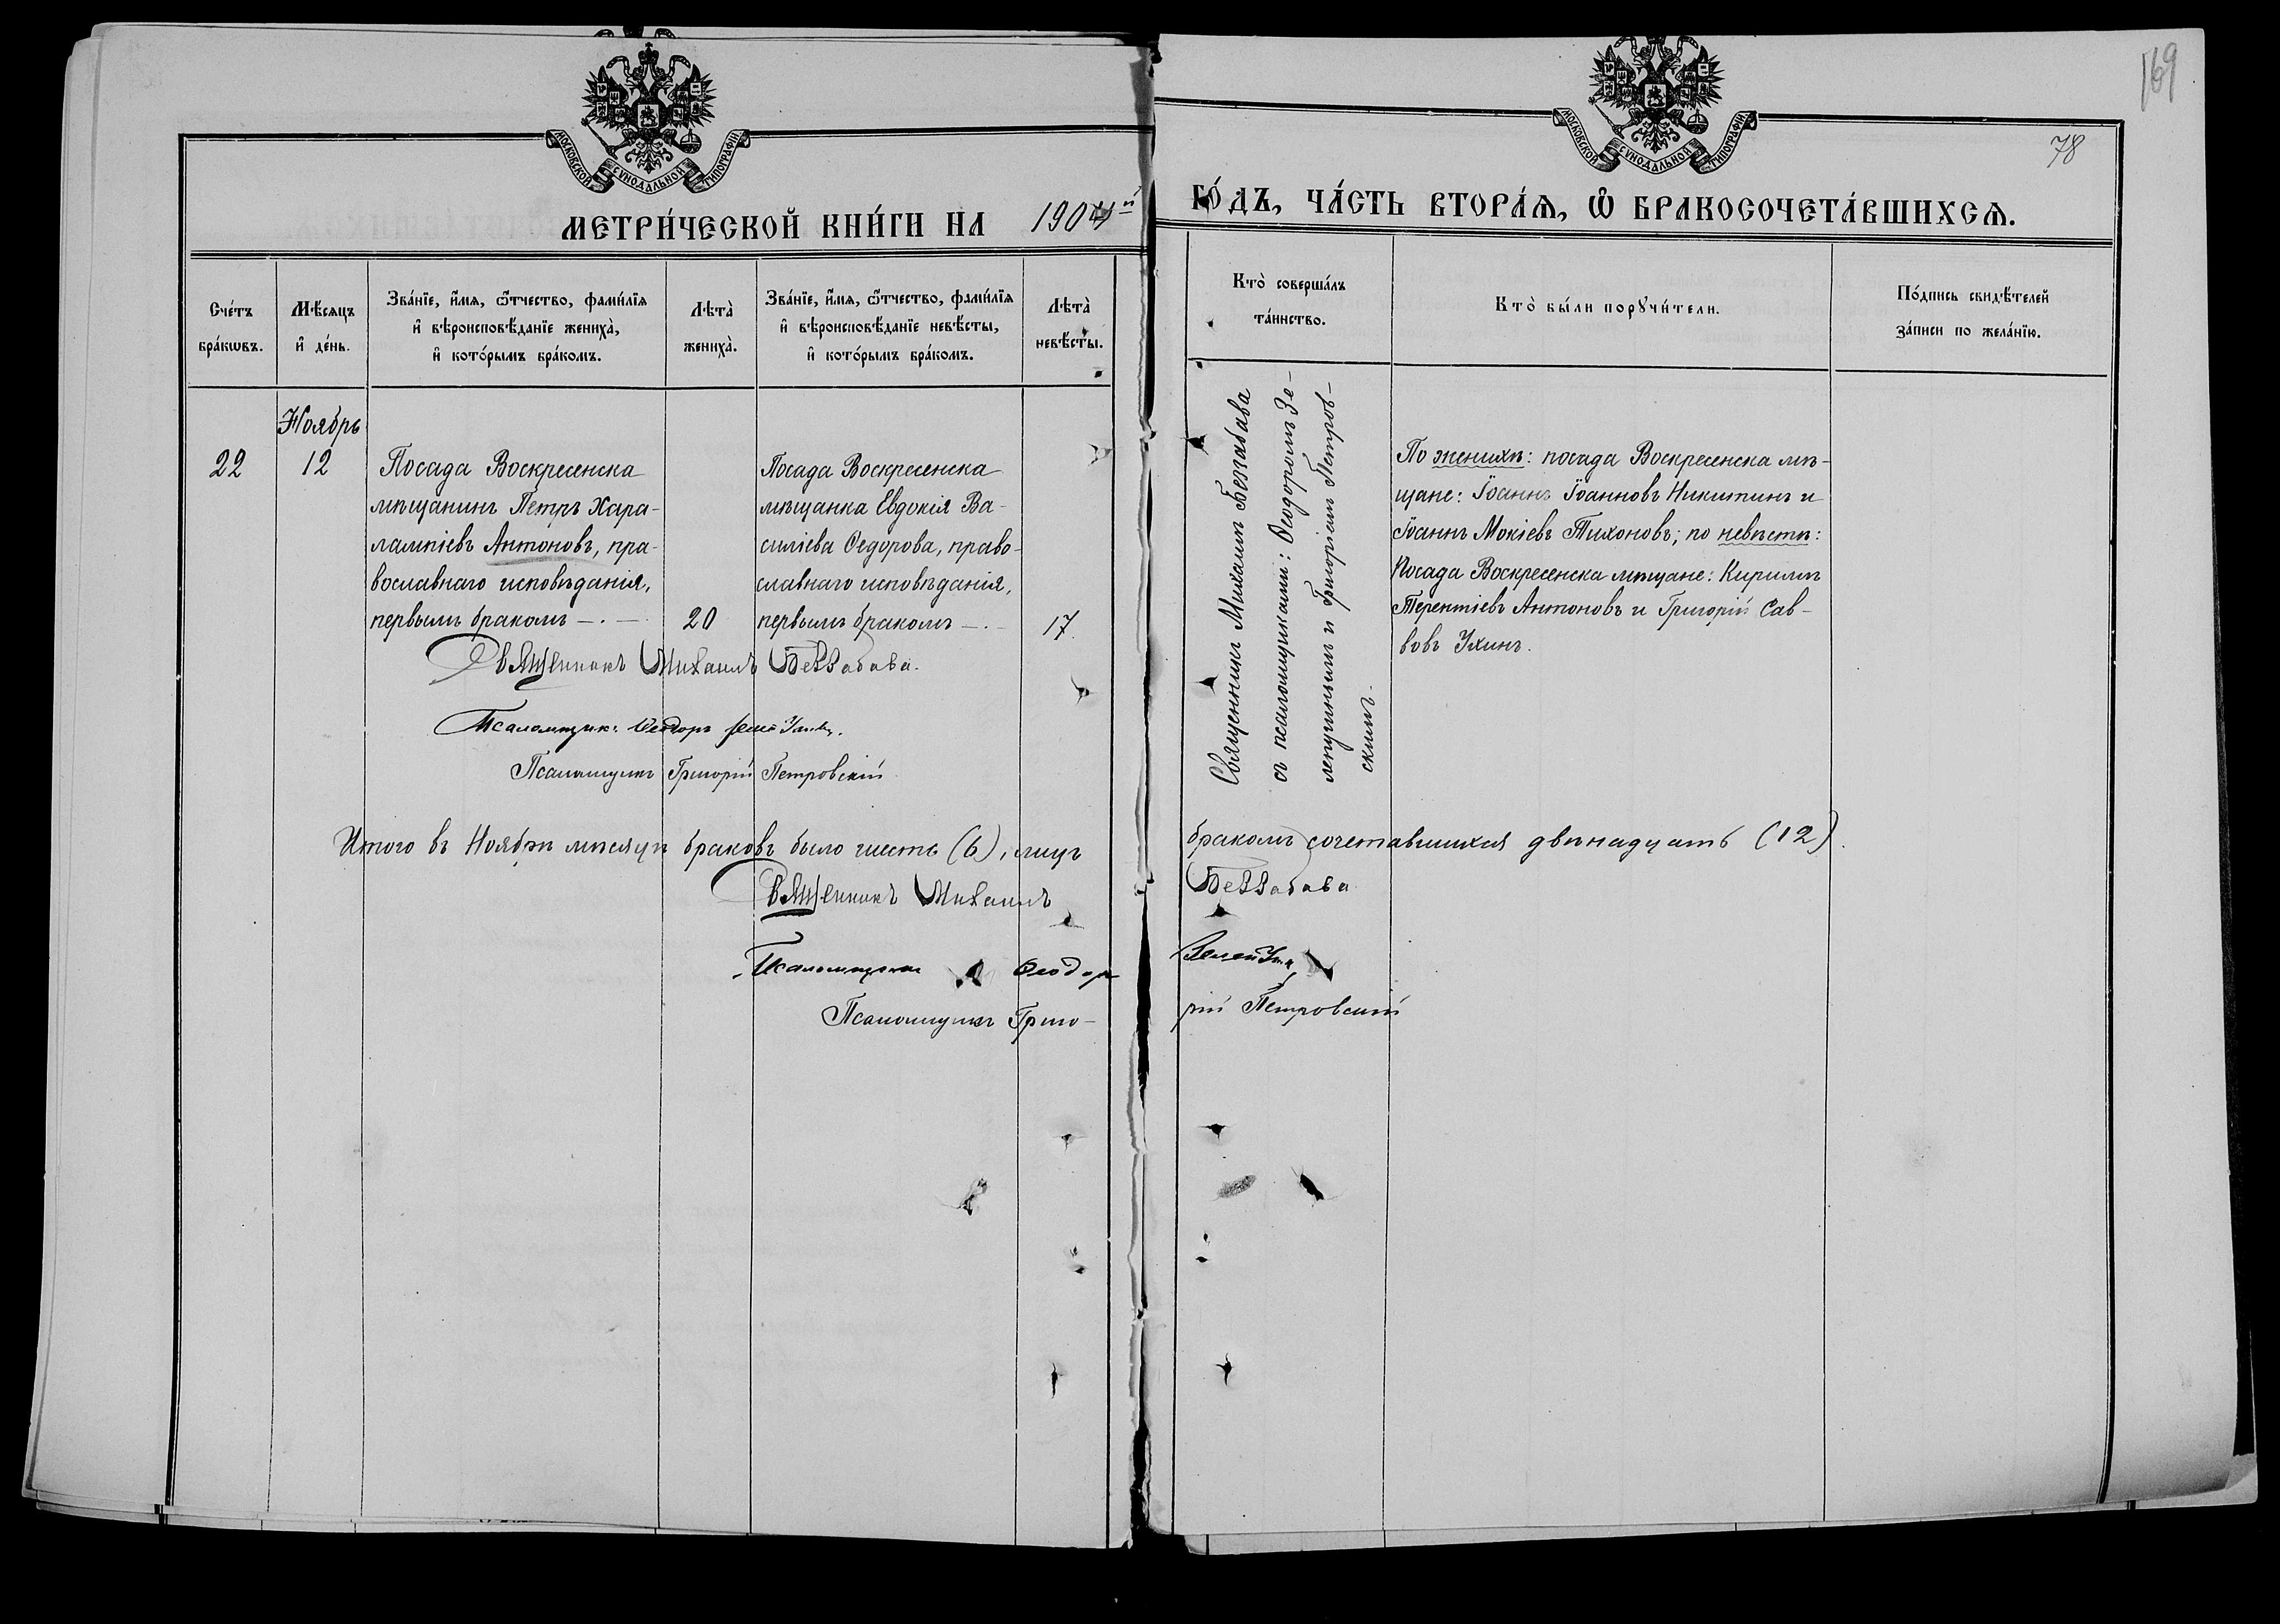 169
78
МОСКОВСКОЙ СѴНОДАЛЬНОЙ ТИПОГРАФІИ
МОСКОВСКОЙ СѴНОДАЛЬНОЙ ТИПОГРАФІИ
МЕТРИ́ЧЕСКОЙ КНИ́ГИ НА 1904й
ГО́ДЪ, ЧА́СТЬ ВТОРА́Ѧ, Ѡ҆ БРАКОСОЧЕТА́ВШИХСѦ.
Сче́тъ
бра́кѡвъ.
Мѣ́сяцъ
и҆ де́нь.
Зва́нїе, и҆́мя, ѻ҆́тчество, фами́лїя
и҆ вѣроисповѣ́данїе жениха̀,
и҆ кото́рымъ бра́комъ.
Лѣта̀
жениха̀.
Зва́нїе, и҆́мя, ѻ҆́тчество, фами́лїя
и҆ вѣроисповѣ́данїе невѣ́сты,
и҆ кото́рымъ бра́комъ.
Лѣта̀
невѣ́сты.
Кто̀ соверша́лъ
та́инство.
Кто̀ бы́ли порꙋчи́тели.
По́дпись свидѣ́телей
за́писи по жела́нїю.
22
Ноябрь
12
Посада Воскресенска
мѣщанинъ Петръ Хара-
лампіевъ Антоновъ, пра-
вославнаго исповѣданія,
первымъ бракомъ —.—
20
Посада Воскресенска
мѣщанка Евдокія Ва-
силіева Ѳедорова, право-
славнаго исповѣданія,
первымъ бракомъ —.—
17.
Священникъ Михаилъ Беззабава
съ псаломщиками: Ѳеодоромъ Зе-
ленугинымъ и Григоріемъ Петров-
скимъ.
По женихѣ: посада Воскресенска мѣ-
щане: Іоаннъ Іоанновъ Никитинъ и
Іоаннъ Мокіевъ Тихоновъ; по невѣстѣ:
Посада Воскресенска мѣщане: Кириллъ
Терентіевъ Антоновъ и Григорій Сав-
вовъ Ухинъ.
Священникъ Михаилъ Беззабава.
Псаломщикъ Ѳеодоръ
Псаломщикъ Григорій Петровскій
Итого въ Ноябрѣ мѣсяцѣ браковъ было шесть (6), лицъ бракомъ сочетавшихся двѣнадцать (12).
Священникъ Михаилъ Беззабава
Псаломщикъ Ѳеодоръ
Псаломщикъ Григо- рій Петровскій